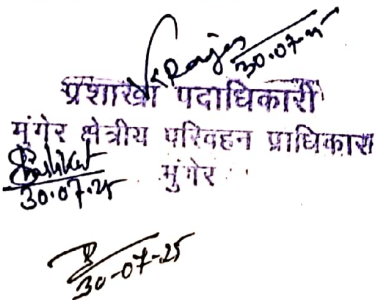 30.07.25
प्रशाखा पदाधिकारी
मुंगेर क्षेत्रीय परिवहन प्राधिकार
30.07.25
मुंगेर
30-07-25